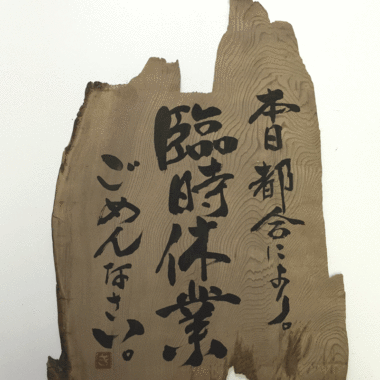 本日都合により。
臨時休業
ごめんなさい。